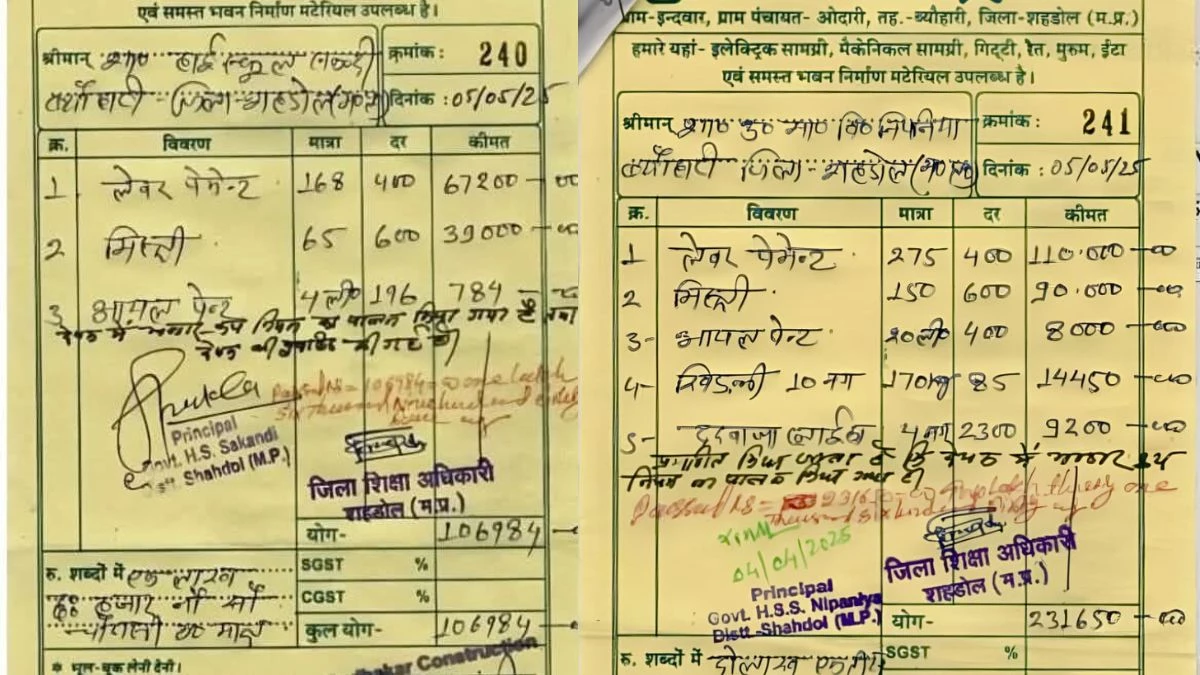 एवं समस्त भवन निर्माण मटेरियल उपलब्ध है।
श्रीमान् शा० हाई स्कूल सकन्दी
क्रमांक : 240
ब्यौहारी - जिला - शहडोल (म० प्र०)
दिनांक : 05/05/25
क्र. विवरण मात्रा दर कीमत
1 लेबर पेमेन्ट 168 400 67200 - 00
2 मिस्त्री 65 600 39000 - 00
3 आयल पेन्ट 4 ली० 196 784 -
देयक में भण्डार क्रय नियम का पालन किया गया है
Passed Rs = 106984 = 00 one lakh
Six thousand
Principal
Govt. H.S. Sakandi
Distt. Shahdol (M.P.)
जिला शिक्षा अधिकारी
शहडोल (म.प्र.)
योग- 106984
रु. शब्दों में एक लाख
छः हजार नौ सौ
चौरासी रु० मात्र
SGST %
CGST %
कुल योग- 106984
* भूल-चूक लेनी देनी।
Construction
ग्राम-इन्दवार, ग्राम पंचायत- ओदारी, तह.-ब्यौहारी, जिला-शहडोल (म.प्र.)
हमारे यहां- इलेक्ट्रिक सामग्री, मैकेनिकल सामग्री, गिट्टी, रेत, मुरूम, ईंटा
एवं समस्त भवन निर्माण मटेरियल उपलब्ध है।
श्रीमान् शा० उ० मा० वि० निपनिया
क्रमांक : 241
ब्यौहारी जिला - शहडोल (म० प्र०)
दिनांक : 05/05/25
क्र. विवरण मात्रा दर कीमत
1 लेबर पेमेन्ट 275 400 110.000 - 00
2 मिस्त्री 150 600 90.000 - 00
3- आयल पेन्ट 20 ली० 400 8000 - 00
4- खिडकी 10 नग 170 kg 85 14450 - 00
5- दरवाजा 4 नग 2300 9200 - 00
प्रमाणित किया जाता है कि देयक में भण्डार क्रय
नियम का पालन किया गया है।
Passed Rs = 231650
04/04/2025
Principal
Govt. H.S.S. Nipaniya
Distt.-Shahdol (M.P.)
जिला शिक्षा अधिकारी
शहडोल (म.प्र.)
योग- 231650 - 00
रु. शब्दों में दो लाख
SGST %